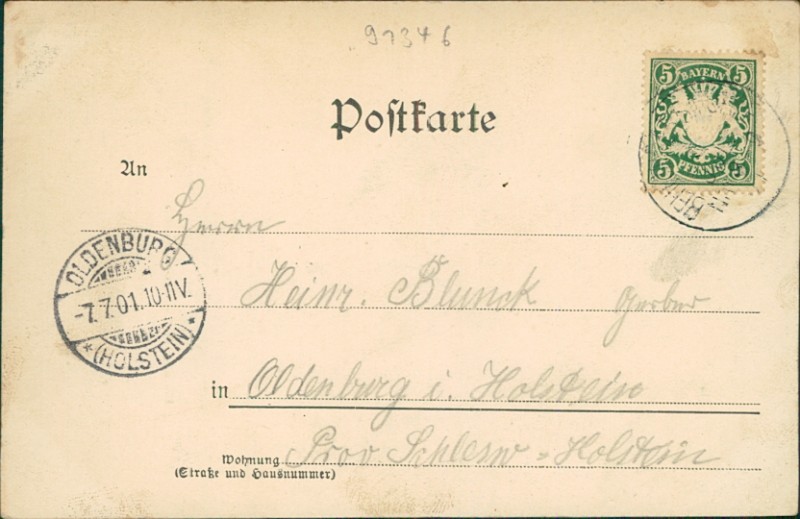 91346
5 BAYERN 5
5 PFENNIG 5
Postkarte
An
Herrn
OLDENBURG
-7.7.01.10-11V.
*(HOLSTEIN)*
Heinr. Blunck Gerber
in Oldenburg i. Holstein
Wohnung Prov Schlesw-Holstein
(Straße und Hausnummer)